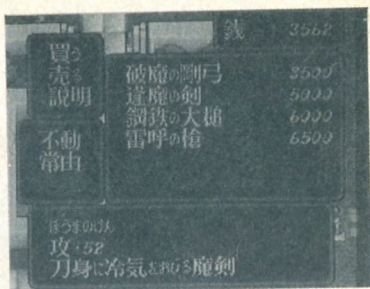 銭 3562
買う
売る
説明
不動
常由
破魔の剛弓 3500
逢魔の剣 5000
鋼鉄の大槌 6000
雷呼の槍 6500
ほうまのけん
攻・52
刀身に冷気を 魔剣